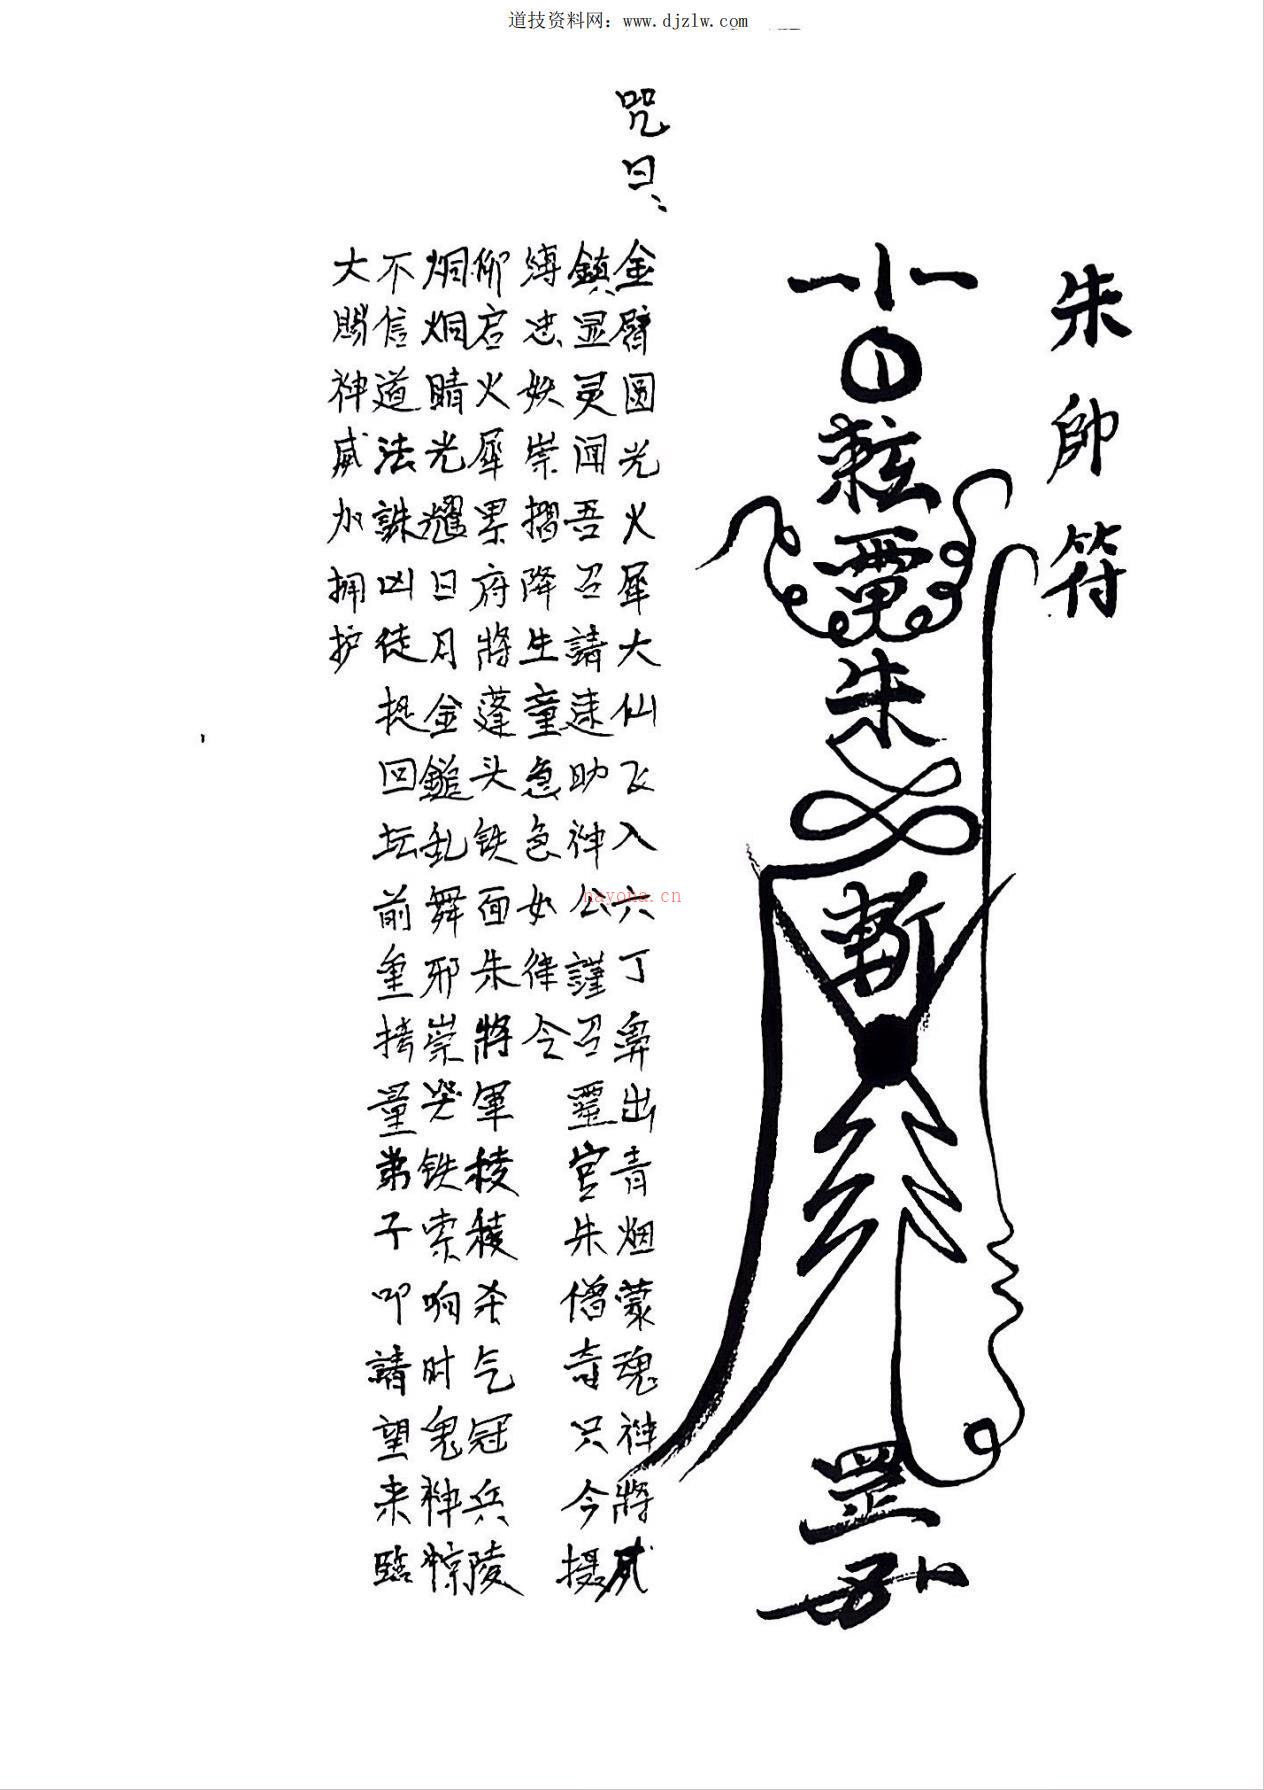 道技资料网：www.djzlw.com
朱帥符
朱
斬
罡
咒曰：
金臂圆光火犀大仙飞入六丁鼻出青烟蒙魂神將威
鎮显灵闻吾召請速助神公謹召靈官朱僧奇只今摄
缚妖崇摺降生童急急如律令
仰启火犀累府將蓬头铁面朱將軍稜稜杀气冠兵陵
炯炯睛光耀日月金鎚乱舞邪崇哭铁索响时鬼神惊
不信道法誅凶徒捉回坛前重拷量弟子叩請望来臨
大賜神威加拥护
nayona.cn